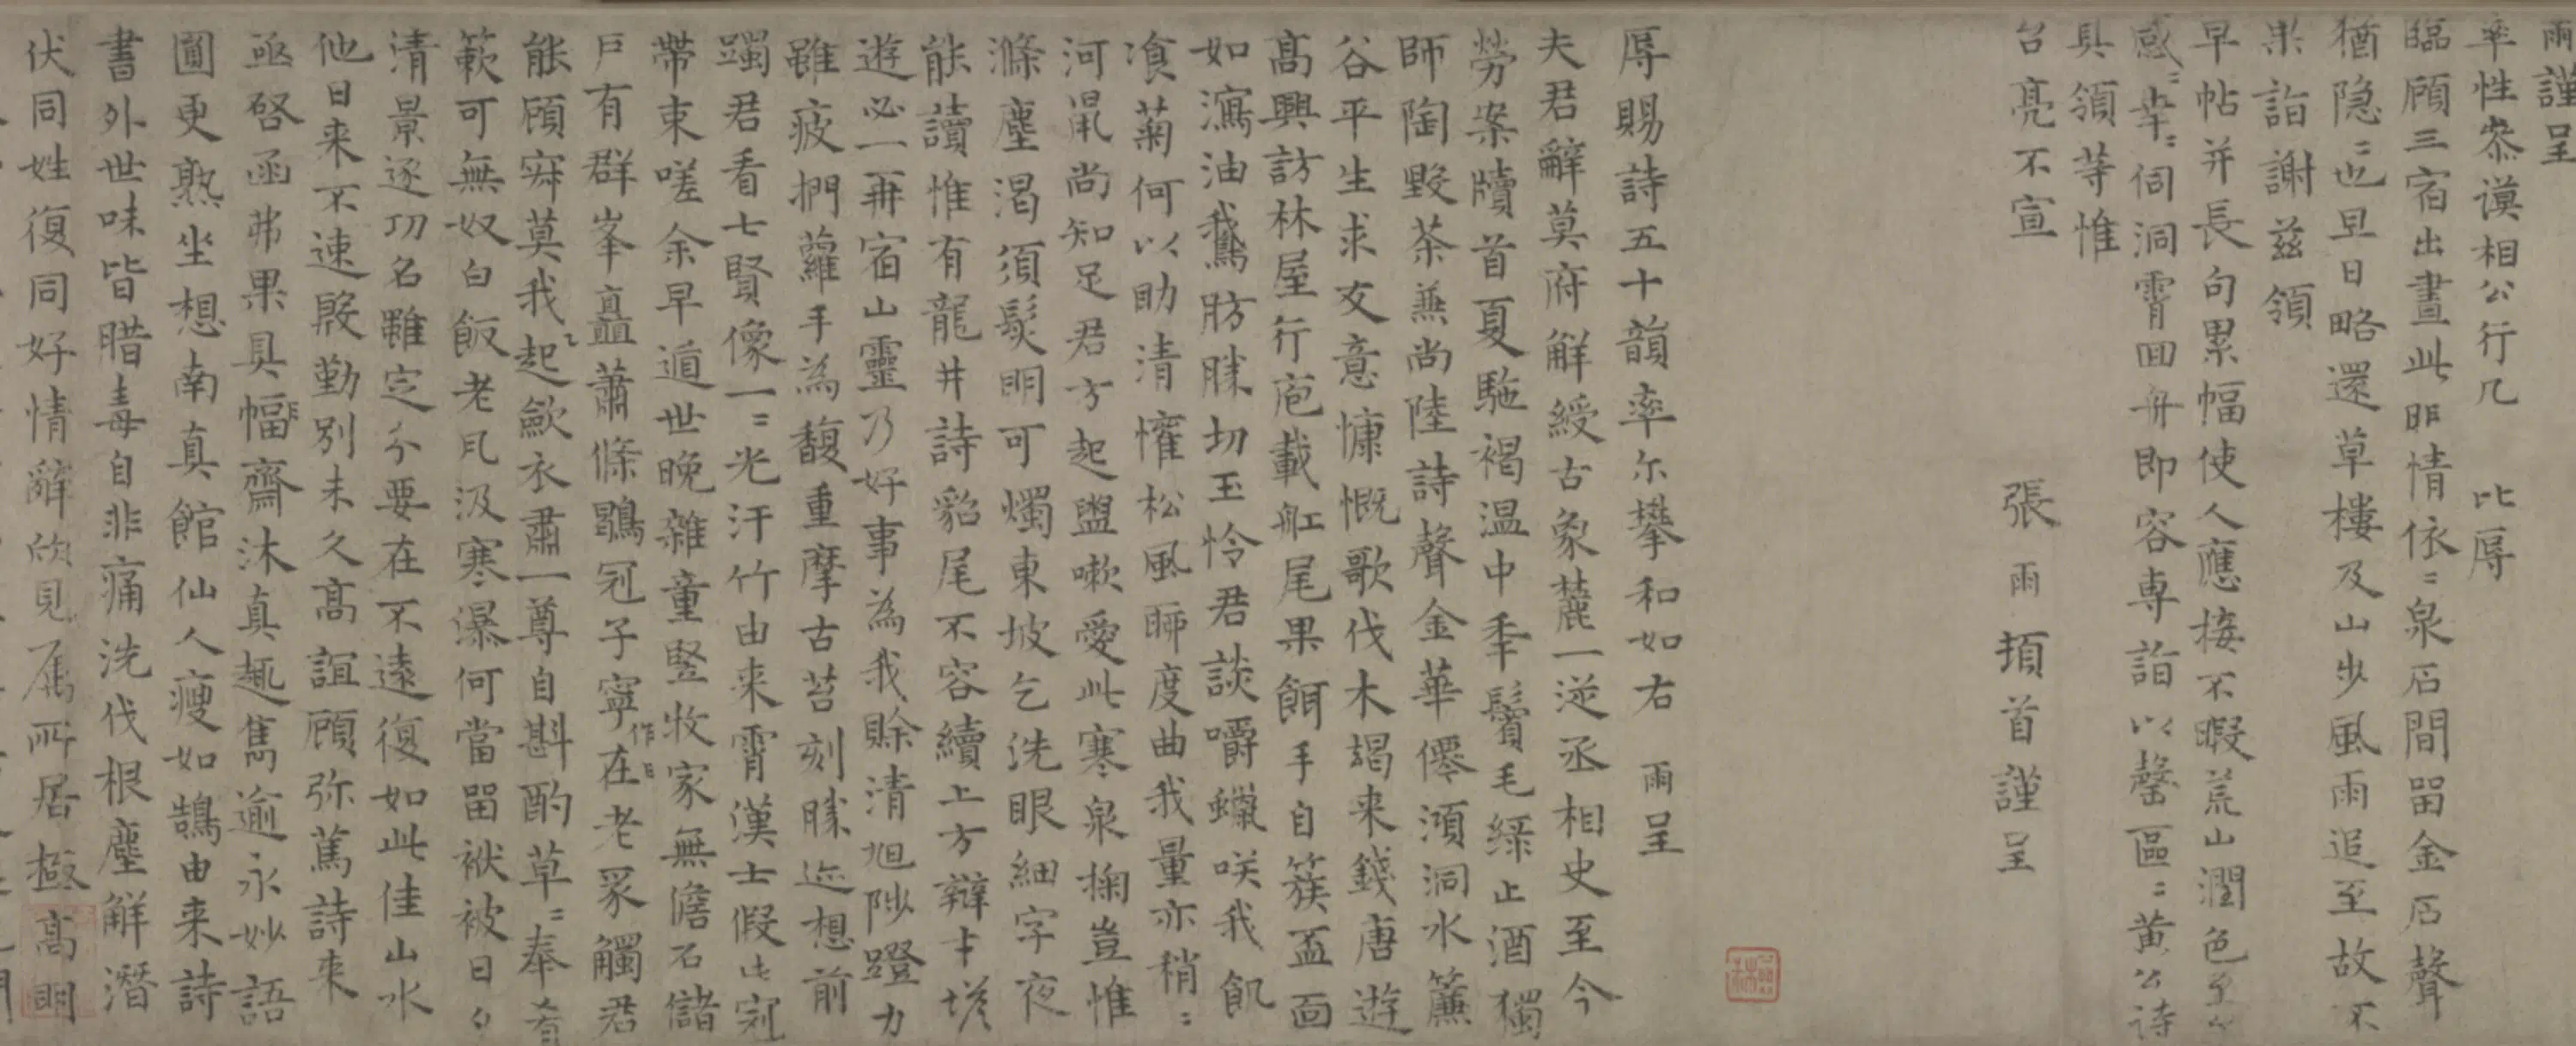 雨謹呈
率性恭謨相公行几 比辱
臨顧三宿出晝此昨情依=泉石間留金石聲
猶隐=也早日略還草樓及山步風雨追至故不
果詣謝兹領
早帖并長句累幅使人應接不暇荒山潤色至
感=幸=伺洞霄回舟即容專詣以罄區=黄公詩
具領等惟
台亮不宣
張雨頓首謹呈
辱賜詩五十韻率尓攀和如右 雨呈
夫君辭莫府解綬古象麓一逆丞相史至今
勞案牘首夏駞褐温中秊鬢毛緑止酒獨
師陶毀茶無尚陸詩聲金華僊澒洞水簾
谷平生求友意慷慨歌伐木朅来錢唐遊
髙興訪林屋行庖載缸尾果餌手自簇盃面
如瀉油鵞肪勝切玉怜君談嚼蠟咲我飢
飡菊何以助清懽松風聊度曲我量亦稍=
河鼠尚知足君方起盥嗽愛此寒泉掬豈惟
滌塵渴須髮明可燭東坡乞洗眼細字夜
能讀惟有龍井詩貂尾不容續上方辯才塔
遊必一再宿山靈乃好事為我賒清旭陟蹬力
雖疲捫蘿手為馥重摩古苔刻勝迹想前
躅君看七賢像一=光汗竹由来霄漢士假此
帶束嗟余早遁世晚雜童竪牧家無儋石儲
戸有群峯矗蕭條鶡冠子寧在老冢觸君
作
能顧寂莫我起歛衣肅一尊自斟酌草=奉肴
蔌可無奴白飯老凡汲寒瀑何當留袱被日夕
清景逐功名雖定分要在不遠復如此佳山水
他日来不速殷勤别未久髙誼顧弥篤詩来
亟啓函弗果具幅齋沐真趣雋逾永妙語
圓更熟坐想南真館仙人瘦如鵠由来詩
書外世味皆腊毒自非痛洗伐根塵解潛
伏同姓復同好情辭欣見属所居極髙明